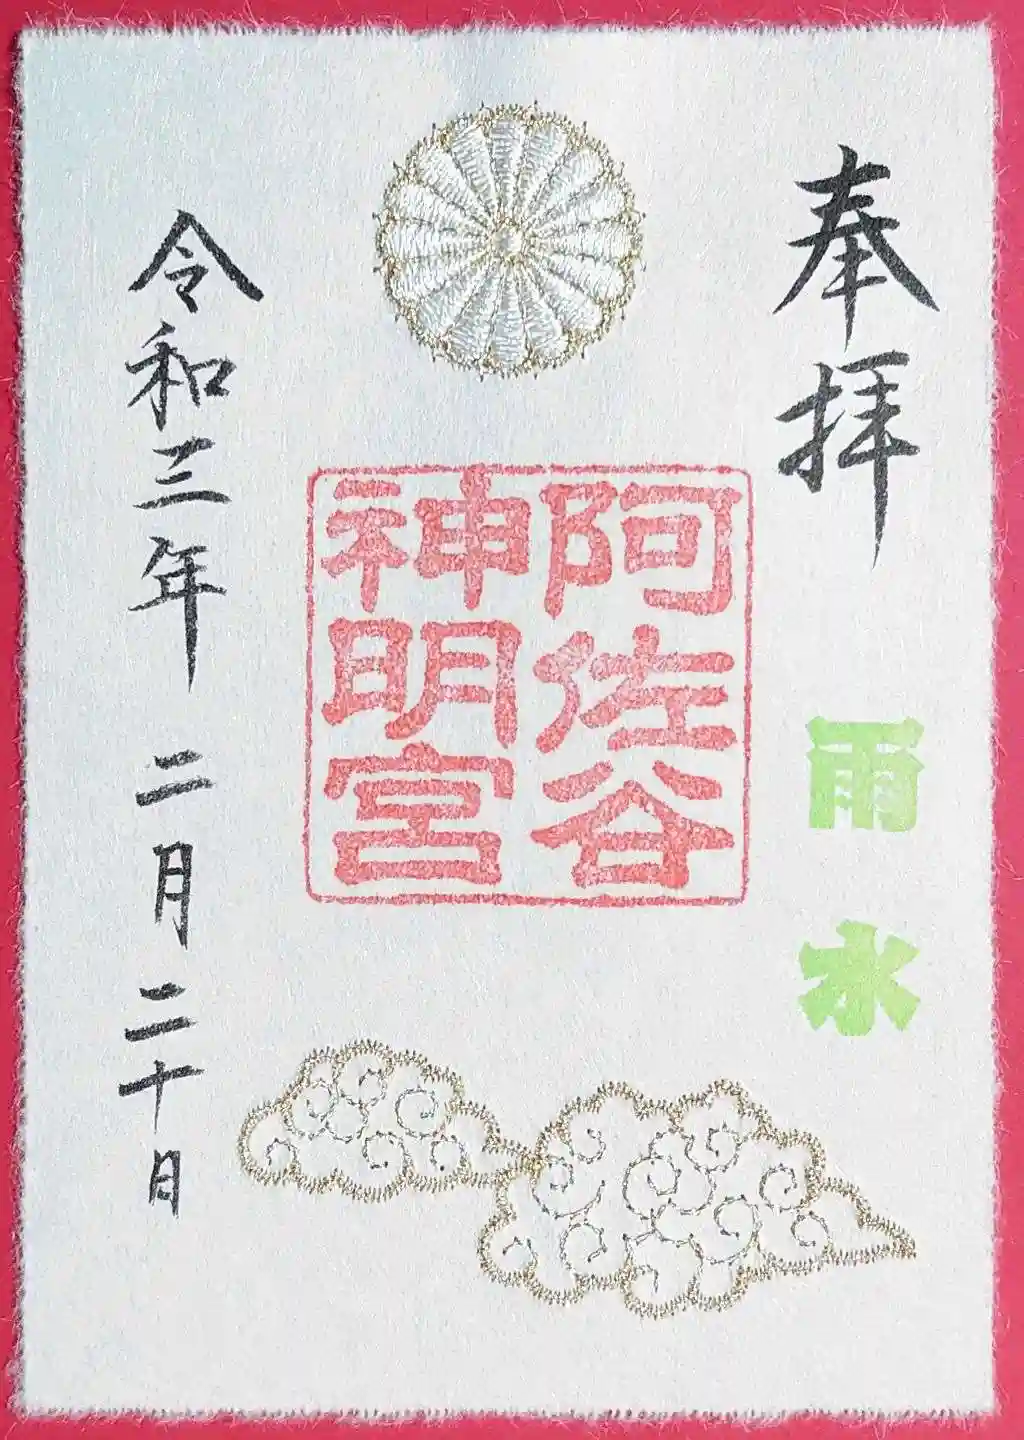 奉拝
雨水
阿佐谷
神明宮
令和三年二月二十日